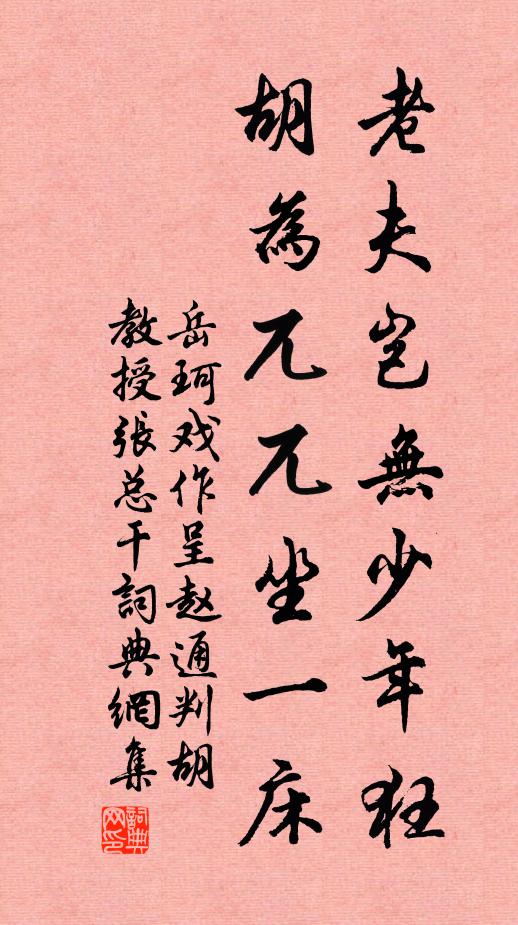 老夫岂無少年狂
胡為兀兀坐一床
岳珂戏作呈赵通判胡
教授張总干詞典網集
詞典网印